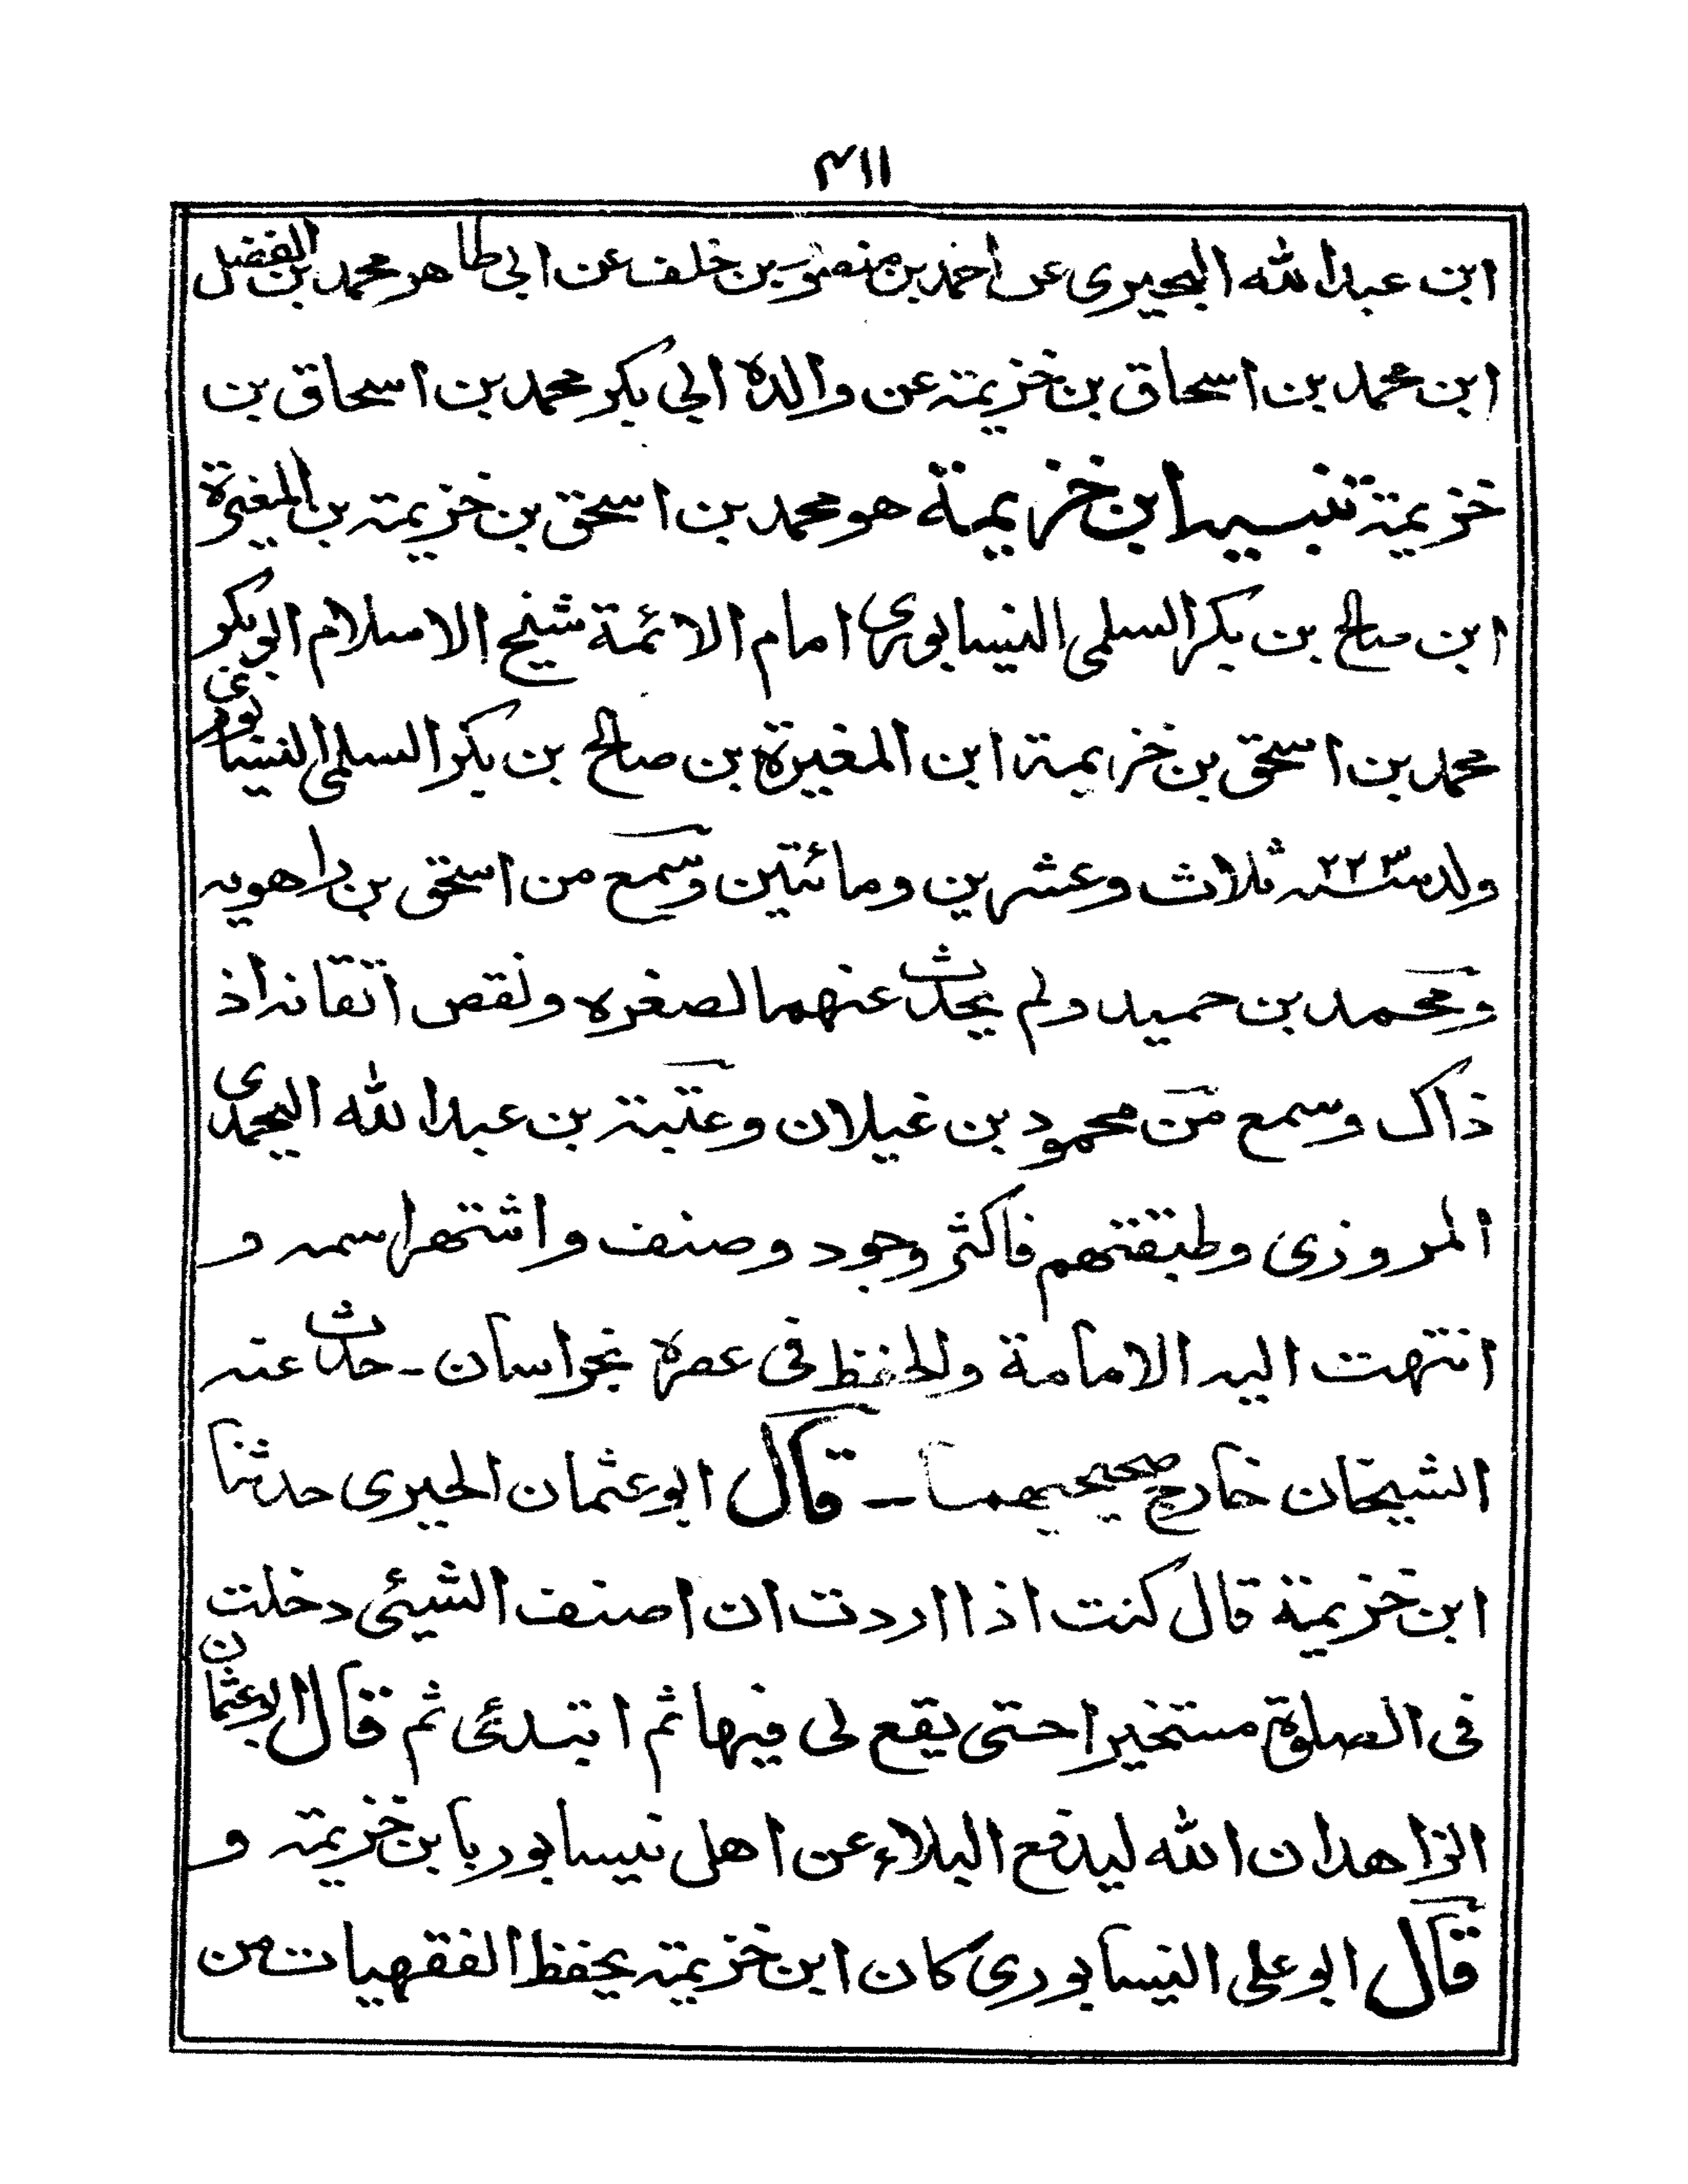 ۱۱۳
ابن عبدالله البحيرى عن احمد بن منصور بن خلف عن ابى طاهر محمد بن الفضل
ابن محمد بن اسحاق بن خزيمة عن والده ابى بكر محمد بن اسحاق بن
خزيمة تنبيه ابن خزيمة هو محمد بن اسحق بن خزيمة بن المغيرة
ابن صالح بن بكر السلمى النيسابورى امام الائمة شيخ الاسلام ابو بكر
محمد بن اسحق بن خزيمة ابن المغيرة بن صالح بن بكر السلمى النيسابورى
ولد سنه ۲۲۳ ثلاث وعشرين ومائتين وسمع من اسحق بن راهويه
ومحمد بن حميد ولم يحدث عنهما لصغره ونقص اتقانه اذ
ذاك وسمع من محمود بن غيلان وعتبة بن عبدالله اليحمدى
المروزى وطبقتهم فاكثر وجود وصنف واشتهر اسمه و
انتهت اليه الامامة والحفظ فى عصره بخراسان ـ حدث عنه
الشيخان خارج صحيحيهما ـ قال ابو عثمان الحيرى حدثنا
ابن خزيمة قال كنت اذا اردت ان اصنف الشيئى دخلت
فى الصلوة مستخيرا حتى يقع لى فيها ثم ابتدئى ثم قال ابو عثمان
الزاهد ان الله ليدفع البلاء عن اهل نيسابور بابن خزيمة و
قال ابو على النيسابورى كان ابن خزيمة يحفظ الفقهيات من